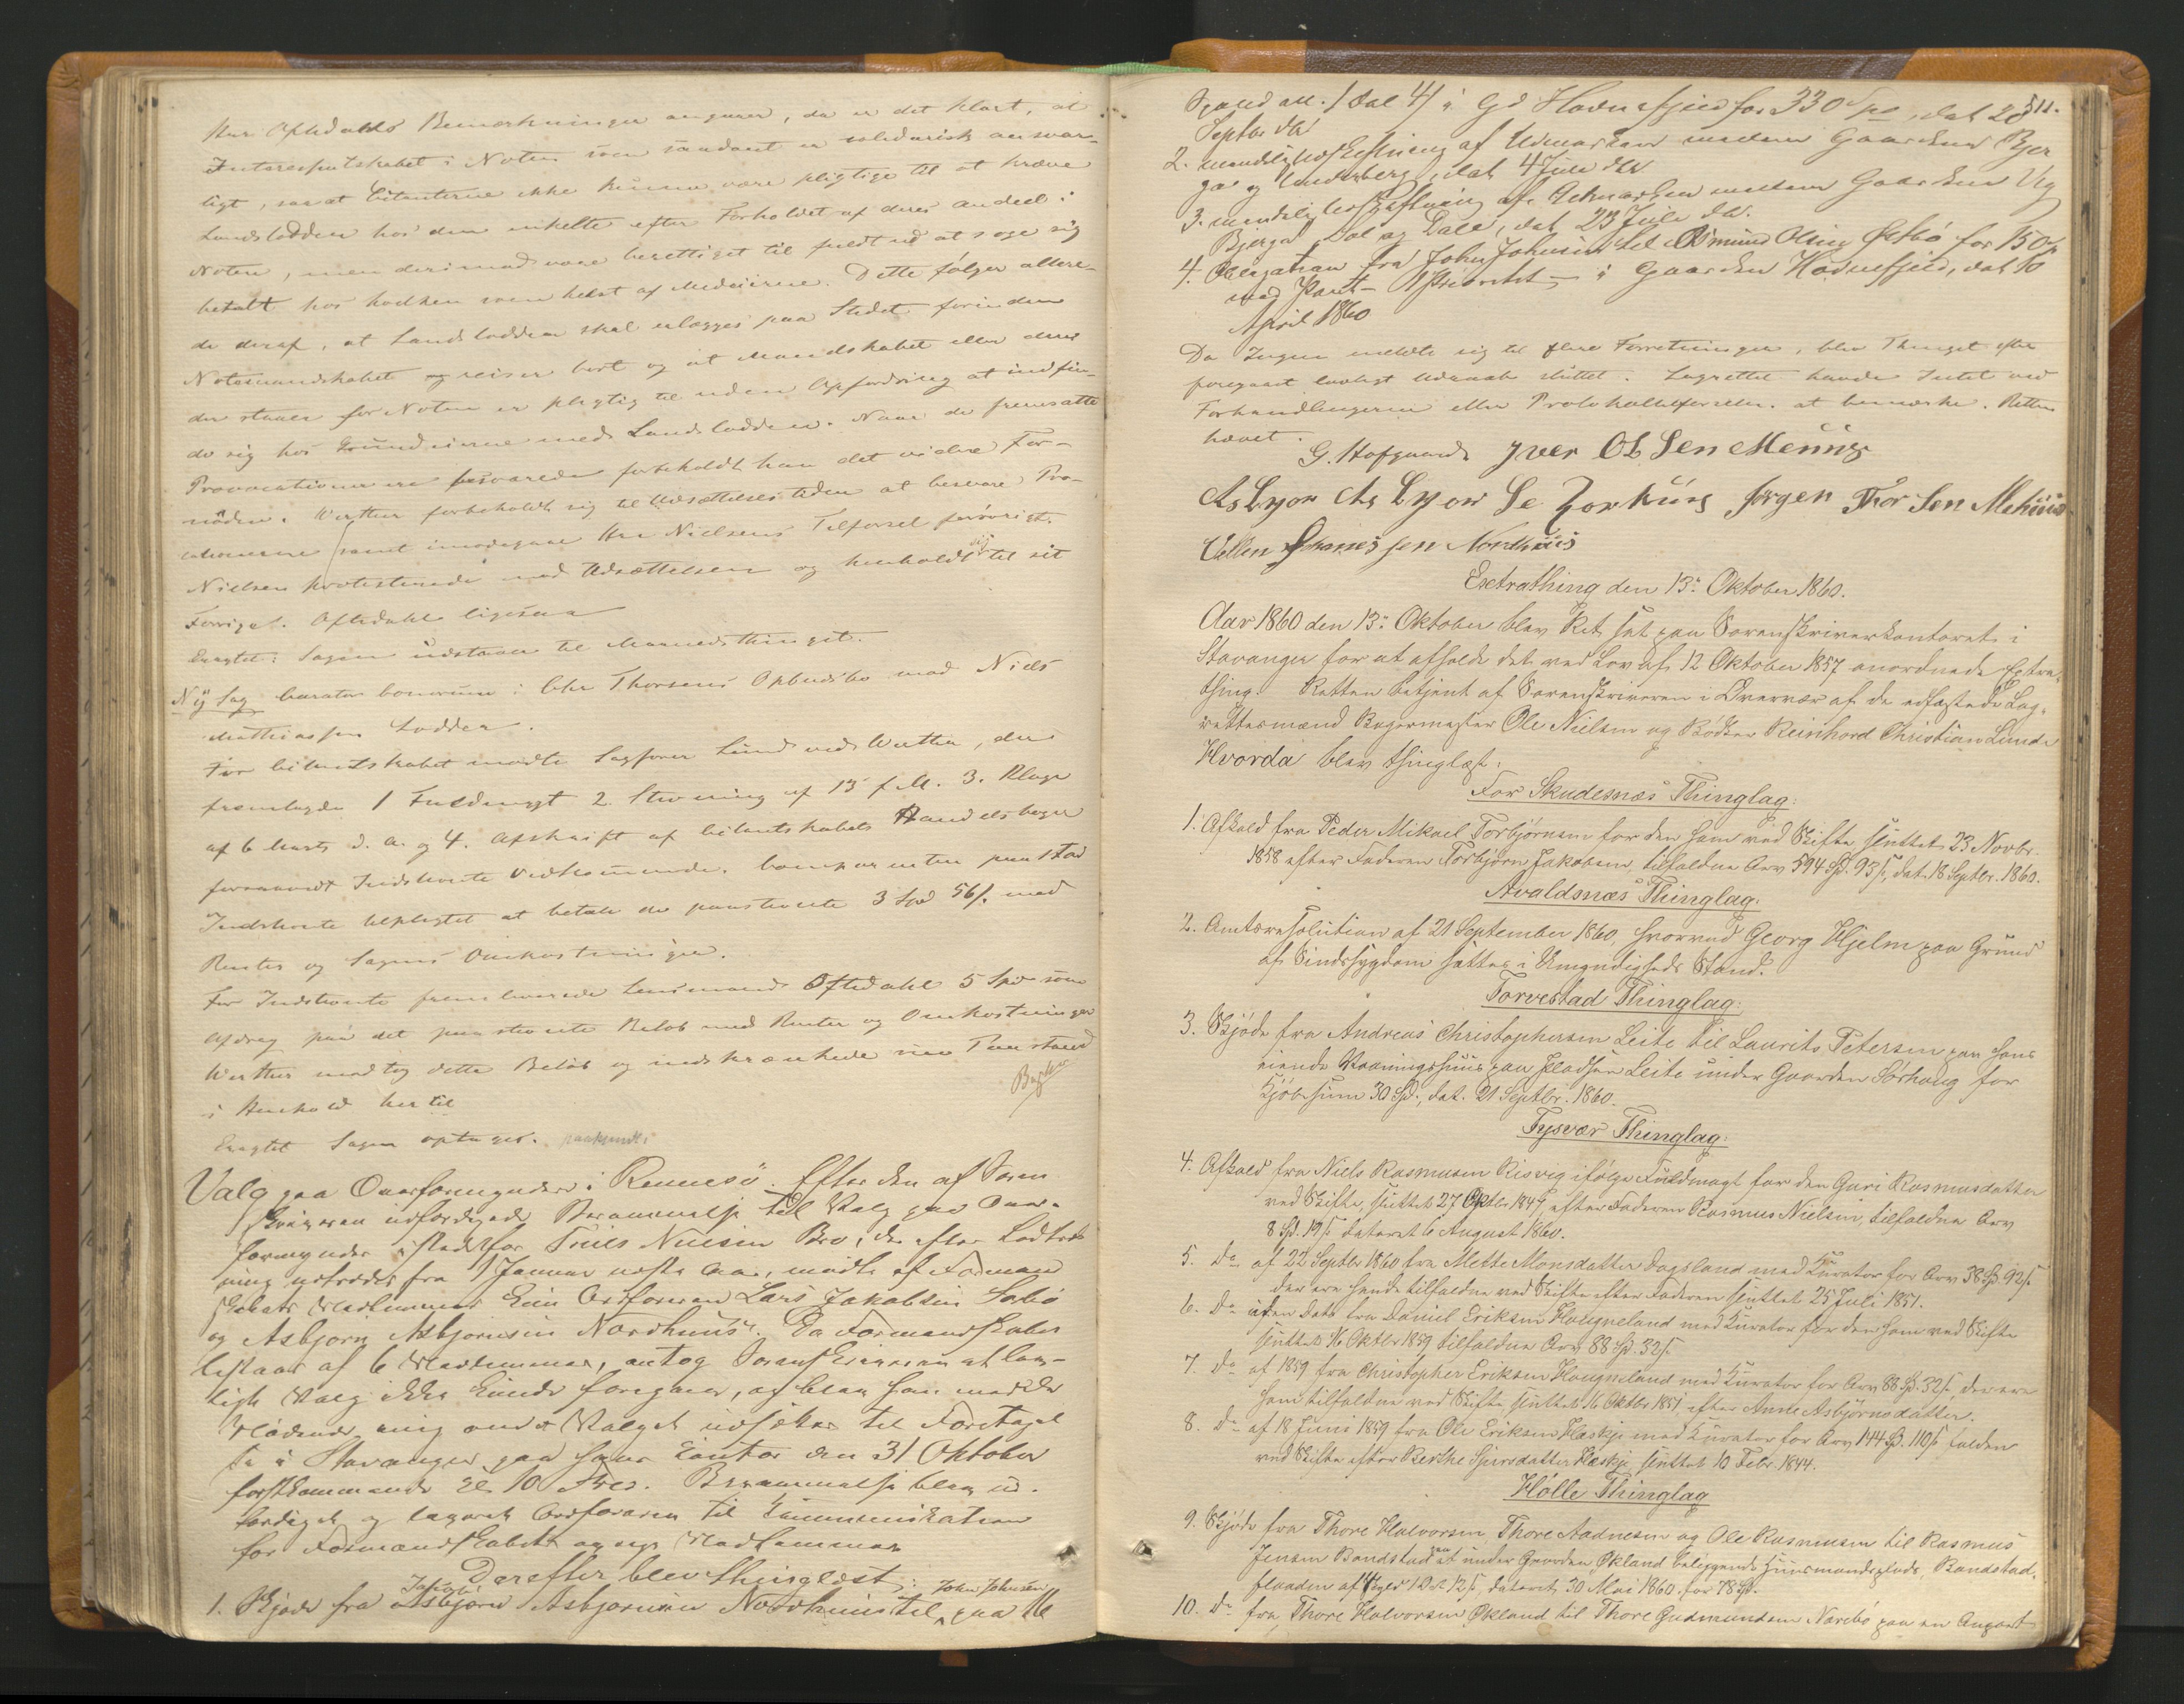 Hr. Oftedahls Bemærkninger angaaer, da er det klart, at
Interessentskabet i Noten som saadant er solidarisk ansvar-
ligt, saa at Citanterne ikke kunne være pligtige til at kræve
Landslodden hos den enkelte efter Forholdet af deres Andeel i
Noten, men derimod være berettiget til fuldt ud at søge sig
betalt hos hvilken som helst af Medeierne. Dette følger allere-
de deraf, at Landslodden skal erlægges paa Stedet forinden
Notemandskabet reiser bort og at Mandskabet eller den
der staaer for Noten er pligtig til uden Opfordring at indfin-
de sig hos Grundeierne med Landslodden. Naar de fremsatte
Provocationer ere besvarede forbeholdt han det videre For-
nødne. Werther forbeholdt sig til Udsættelsestiden at besvare Pro-
vocationerne samt imødegaae Hr. Nielsens Tilførsel forøvrigt.
Nielsen protesterede mod Udsættelsen og henholdt sig til sit
Forrige. Oftedahl ligesaa
Eragtet: Sagen udstaaer til Maanedsthinget.
Ny Sag Curator bonorum i Chr. Thorsens Opbudsbo mod Niels
Mathiassen Lodden.
For Citantskabet mødte Sagfører Lund ved Werther, der
fremlagde 1 Fuldmagt 2. Stevning af 15 f. M. 3. Klage
af 6 Marts d. A. og 4. Afskrift af Citantskabets Handelsbøger
forsaavidt Indstevnte vedkommende. Comparenten paastod
Indstevnte tilpligtet at betale de paastevnte 3 Spd 56 s. med
Renter og Sagens Omkostninger.
For Indstevnte fremleverede Lensmand Oftedahl 5 Spd som
Afdrag paa det paastevnte Beløb med Renter og Omkostninger
Werther modtog dette Beløb og indskrænkede sin Paastand
i Henhold hertil
Eragtet Sagen optages. paakjendt.
Valg paa Overformynder i Rennesø. Efter den af Soren-
skriveren udfærdigede Berammelse til Valg paa Over-
formynder istedetfor Truls Nielsen Bru, der efter Lodtræk-
ning udtræder fra 1 Januar næste Aar, mødte af Formand-
skabets Medlemmer kun Ordføreren Lars Jakobsen Sørbø
og Asbjørn Asbjørnsen Nordhuus. Da Formandskabet
bestaar af 6 Medlemmer, antog Sorenskriveren at lov-
ligt Valg ikke kunde foregaae, og blev han med de
Mødende enig om at Valget udsættes til Foretagel-
se i Stavanger paa hans Kontor den 31 Oktober
førstkommende Kl 10 Form. Berammelse blev ud-
færdiget og leveret Ordføreren til Kommunikation
for Formandskabets øvrige Medlemmer
Derefter blev thinglæst:
1. Skjøde fra Jakob Asbjørn Asbjørnsen Nordhuus til John Johnsen paa 1/6
511.
Spand all. / Dal 4/ i Gd Hodnefjeld for 330 Spd, dat 28
Septbr d.A.
2. mindelig Udskiftning af Udmarken mellem Gaardene Bjer-
ga og Underberge, dat 4 Juli d.A.
3. mindelig Udskiftning af Udmarken mellem Gaardene Vig
Bjerga, Dal og Dale, dat 23 Juli d.A.
4. Obligation fra John Johnsen til Osmund Olsen Østbø for 150 Spd
med Pant 1 Prioritet i Gaarden Hodnefjeld, dat 10
April 1860
Da Ingen meldte sig til flere Forretninger, blev Thinget efter
foregaaet lovligt Udraab sluttet. Lagrettet havde Intet ved
Forhandlingerne eller Protokolførselen at bemærke. Retten
hævet.
G. Hofgaard Iver Olsen Menng
Aslyor As Lyor Se Zorhüus Jørgen Thor Sen Mehüus
Vellem Johannessen Nordhüus
Extrathing den 13de Oktober 1860.
Aar 1860 den 13de Oktober blev Ret sat paa Sorenskriverkontoret i
Stavanger for at afholde det ved Lov af 12 Oktober 1857 anordnede Extra-
thing. Retten betjent af Sorenskriveren i Overvær af de edfæstede Lag-
rettesmænd Bagermester Ole Nielsen og Bødker Reinhard Christian Lunde
Hvorda blev thinglæst:
For Skudesnæs Thinglag:
1. Afkald fra Peder Mikael Torbjørnsen for den ham ved Skifte sluttet 23 Novbr.
1858 efter Faderen Torbjørn Jakobsen, tilfaldne Arv 594 Spd. 93 s, dat. 18 Septbr. 1860.
Avaldsnæs Thinglag:
2. Amtsresolution af 21 September 1860, hvorved Georg Hjelm paa Grund
af Sindssygdom sættes i Umyndigheds Stand.
Torvestad Thinglag:
3. Skjøde fra Andreas Christophersen Leite til Laurits Petersen paa hans
eiende Vaaningshuus paa Pladsen Leite under Gaarden Sørhaug for
Kjøbesum 30 Spd., dat. 21 Septbr. 1860.
Tysvær Thinglag:
4. Afkald fra Niels Rasmusen Risvig ifølge Fuldmagt for den Guri Rasmusdatter
ved Skifte, sluttet 27 Oktbr. 1847 efter Faderen Rasmus Nielsen, tilfaldne Arv
8 Spd. 19 s dateret 6 August 1860.
5. Do af 22 Septbr 1860 fra Mette Monsdatter Dagsland med Kurator for Arv 38 Spd 92 s.
der ere hende tilfaldne ved Skifte efter Faderen sluttet 25 Juli 1851.
6. Do uden Dato fra Daniel Eriksen Haugneland med Kurator for den ham ved Skifte
sluttet 16 Oktbr 1859 tilfaldne Arv 88 Spd. 32 s.
7. Do af 1859 fra Christopher Eriksen Haugneland med Kurator for Arv 88 Spd. 32 s, der ere
ham tilfaldne ved Skifte sluttet 16 Oktbr 1851 efter Anne Asbjørnsdatter.
8. Do af 18 Juni 1859 fra Ole Eriksen Hæskje med Kurator for Arv 144 Spd. 110 s falden
ved Skifte efter Berthe Sjursdatter Hæskje sluttet 10 Febr. 1844.
Hølle Thinglag
9. Skjøde fra Thore Halvorsen, Thore Aadnesen og Ole Rasmusen til Rasmus
Jensen Bandstad paa et under Gaarden Økland beliggende Huusmandsplads, Randstad-
flaaden af Skyld 1 Ort 12 s, dateret 30 Mai 1860 for 78 Spd.
10. Do fra Thore Halvorsen Økland til Thore Gudmundsen Narebø paa en Anpart